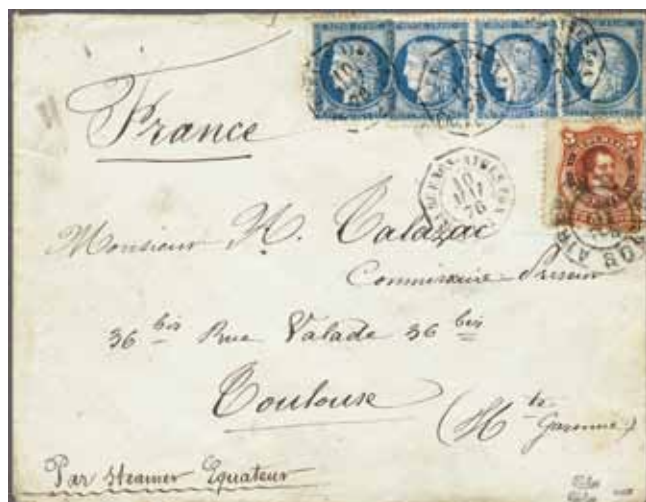 France
BUENOS-AYRES
10
MAI
76
5
BUENOS AIRES
Monsieur H. Calazac
Commissaire-Priseur
36 bis Rue Valade 36 bis
Toulouse
(Hte Garonne)
Par Steamer Equateur